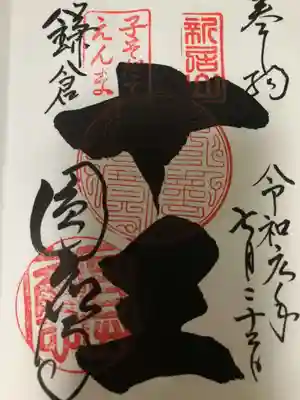 奉拝
新居山
令和元年
七月二十六日
十王
子そだて
えんま
鎌倉
圓應寺